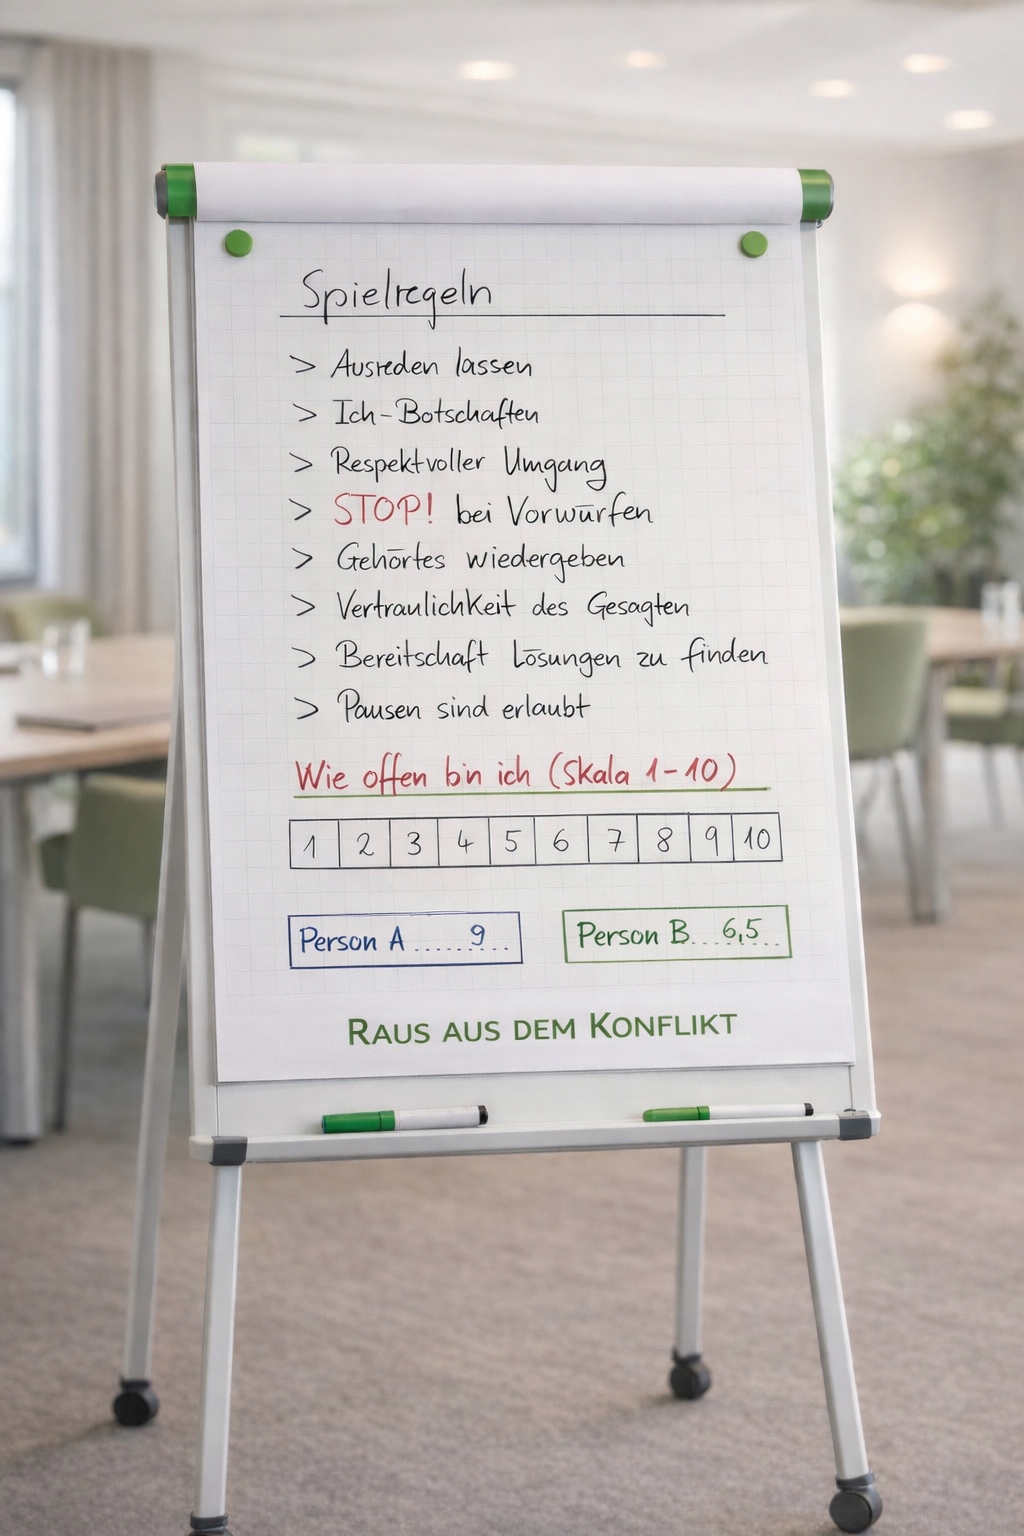 Spielregeln
> Ausreden lassen
> Ich-Botschaften
> Respektvoller Umgang
> STOP! bei Vorwürfen
> Gehörtes wiedergeben
> Vertraulichkeit des Gesagten
> Bereitschaft Lösungen zu finden
> Pausen sind erlaubt
Wie offen bin ich (Skala 1-10)
1 2 3 4 5 6 7 8 9 10
Person A ...... 9 ..
Person B ... 6,5 ..
RAUS AUS DEM KONFLIKT